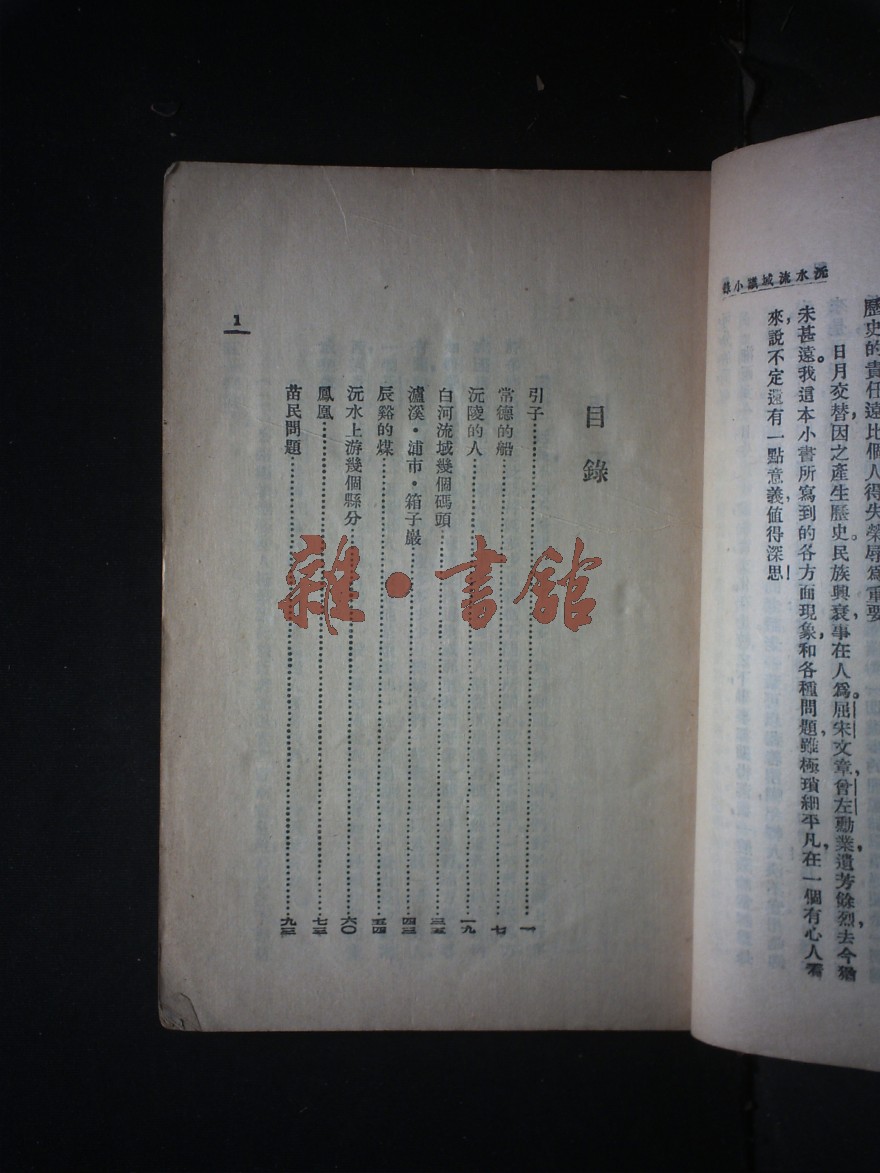 沅水流域識小錄
歷史的責任遠比個人得失榮辱爲重要
日月交替因之產生歷史民族興衰事在人爲。屈宋文章曾左勳業，遺芳餘烈去今猶
未甚遠。我這本小書所寫到的各方面現象，和各種問題，雖極瑣細平凡，在一個有心人看
來，說不定還有一點意義，值得深思！
目錄
引子……一
常德的船……七
沅陵的人……一九
白河流域幾個碼頭……三五
瀘溪·浦市·箱子巖……四三
辰谿的煤……五四
沅水上游幾個縣分……六〇
鳳凰……七三
苗民問題……九三
1
雜·書館